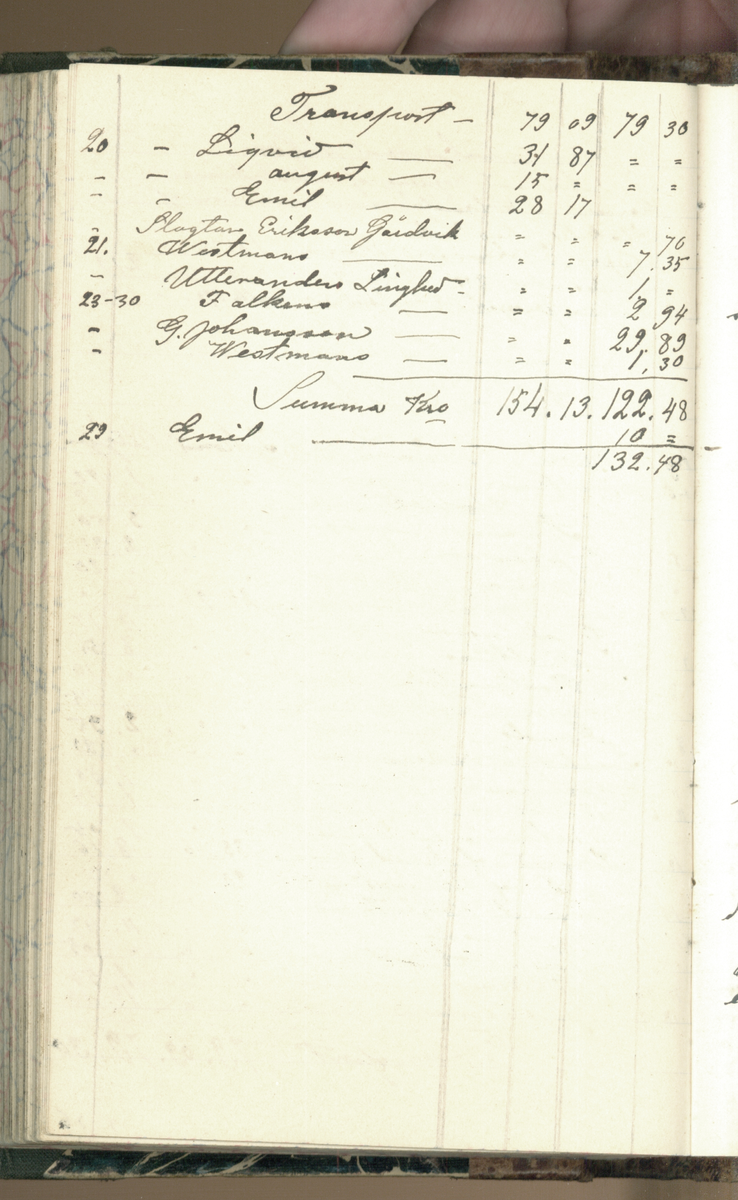 Transport – 79 09 79 30
20 – Liqvid — 31 87 = =
– – august — 15 = = =
– – Emil — 28 17
– Slagtarn Eriksson Gärdvik = = = 70
21. Westmans — = = 7.35
– Utteranders Linghed – = = 1 =
23-30 Falkens — = = 2 94
– G. Johansson — = = 29.89
– Westmans — = = 1,30
Summa Kro 154.13. 122.48
29 Emil — 10 =
132.48